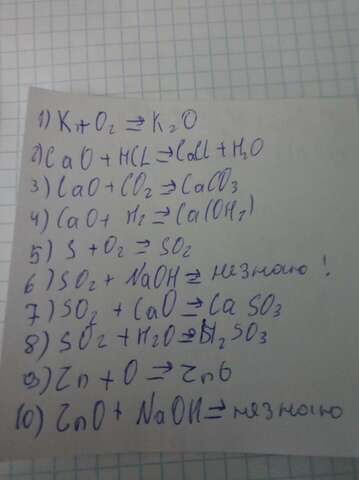 1) K + O₂ ⇒ K₂O
2) CaO + HCl ⇒ CaCl + H₂O
3) CaO + CO₂ ⇒ CaCO₃
4) CaO + H₂ ⇒ Ca(OH₂)
5) S + O₂ ⇒ SO₂
6) SO₂ + NaOH ⇒ незнаю!
7) SO₂ + CaO ⇒ Ca SO₃
8) SO₂ + H₂O ⇒ H₂SO₃
9) Zn + O ⇒ ZnO
10) ZnO + NaOH ⇒ незнаю